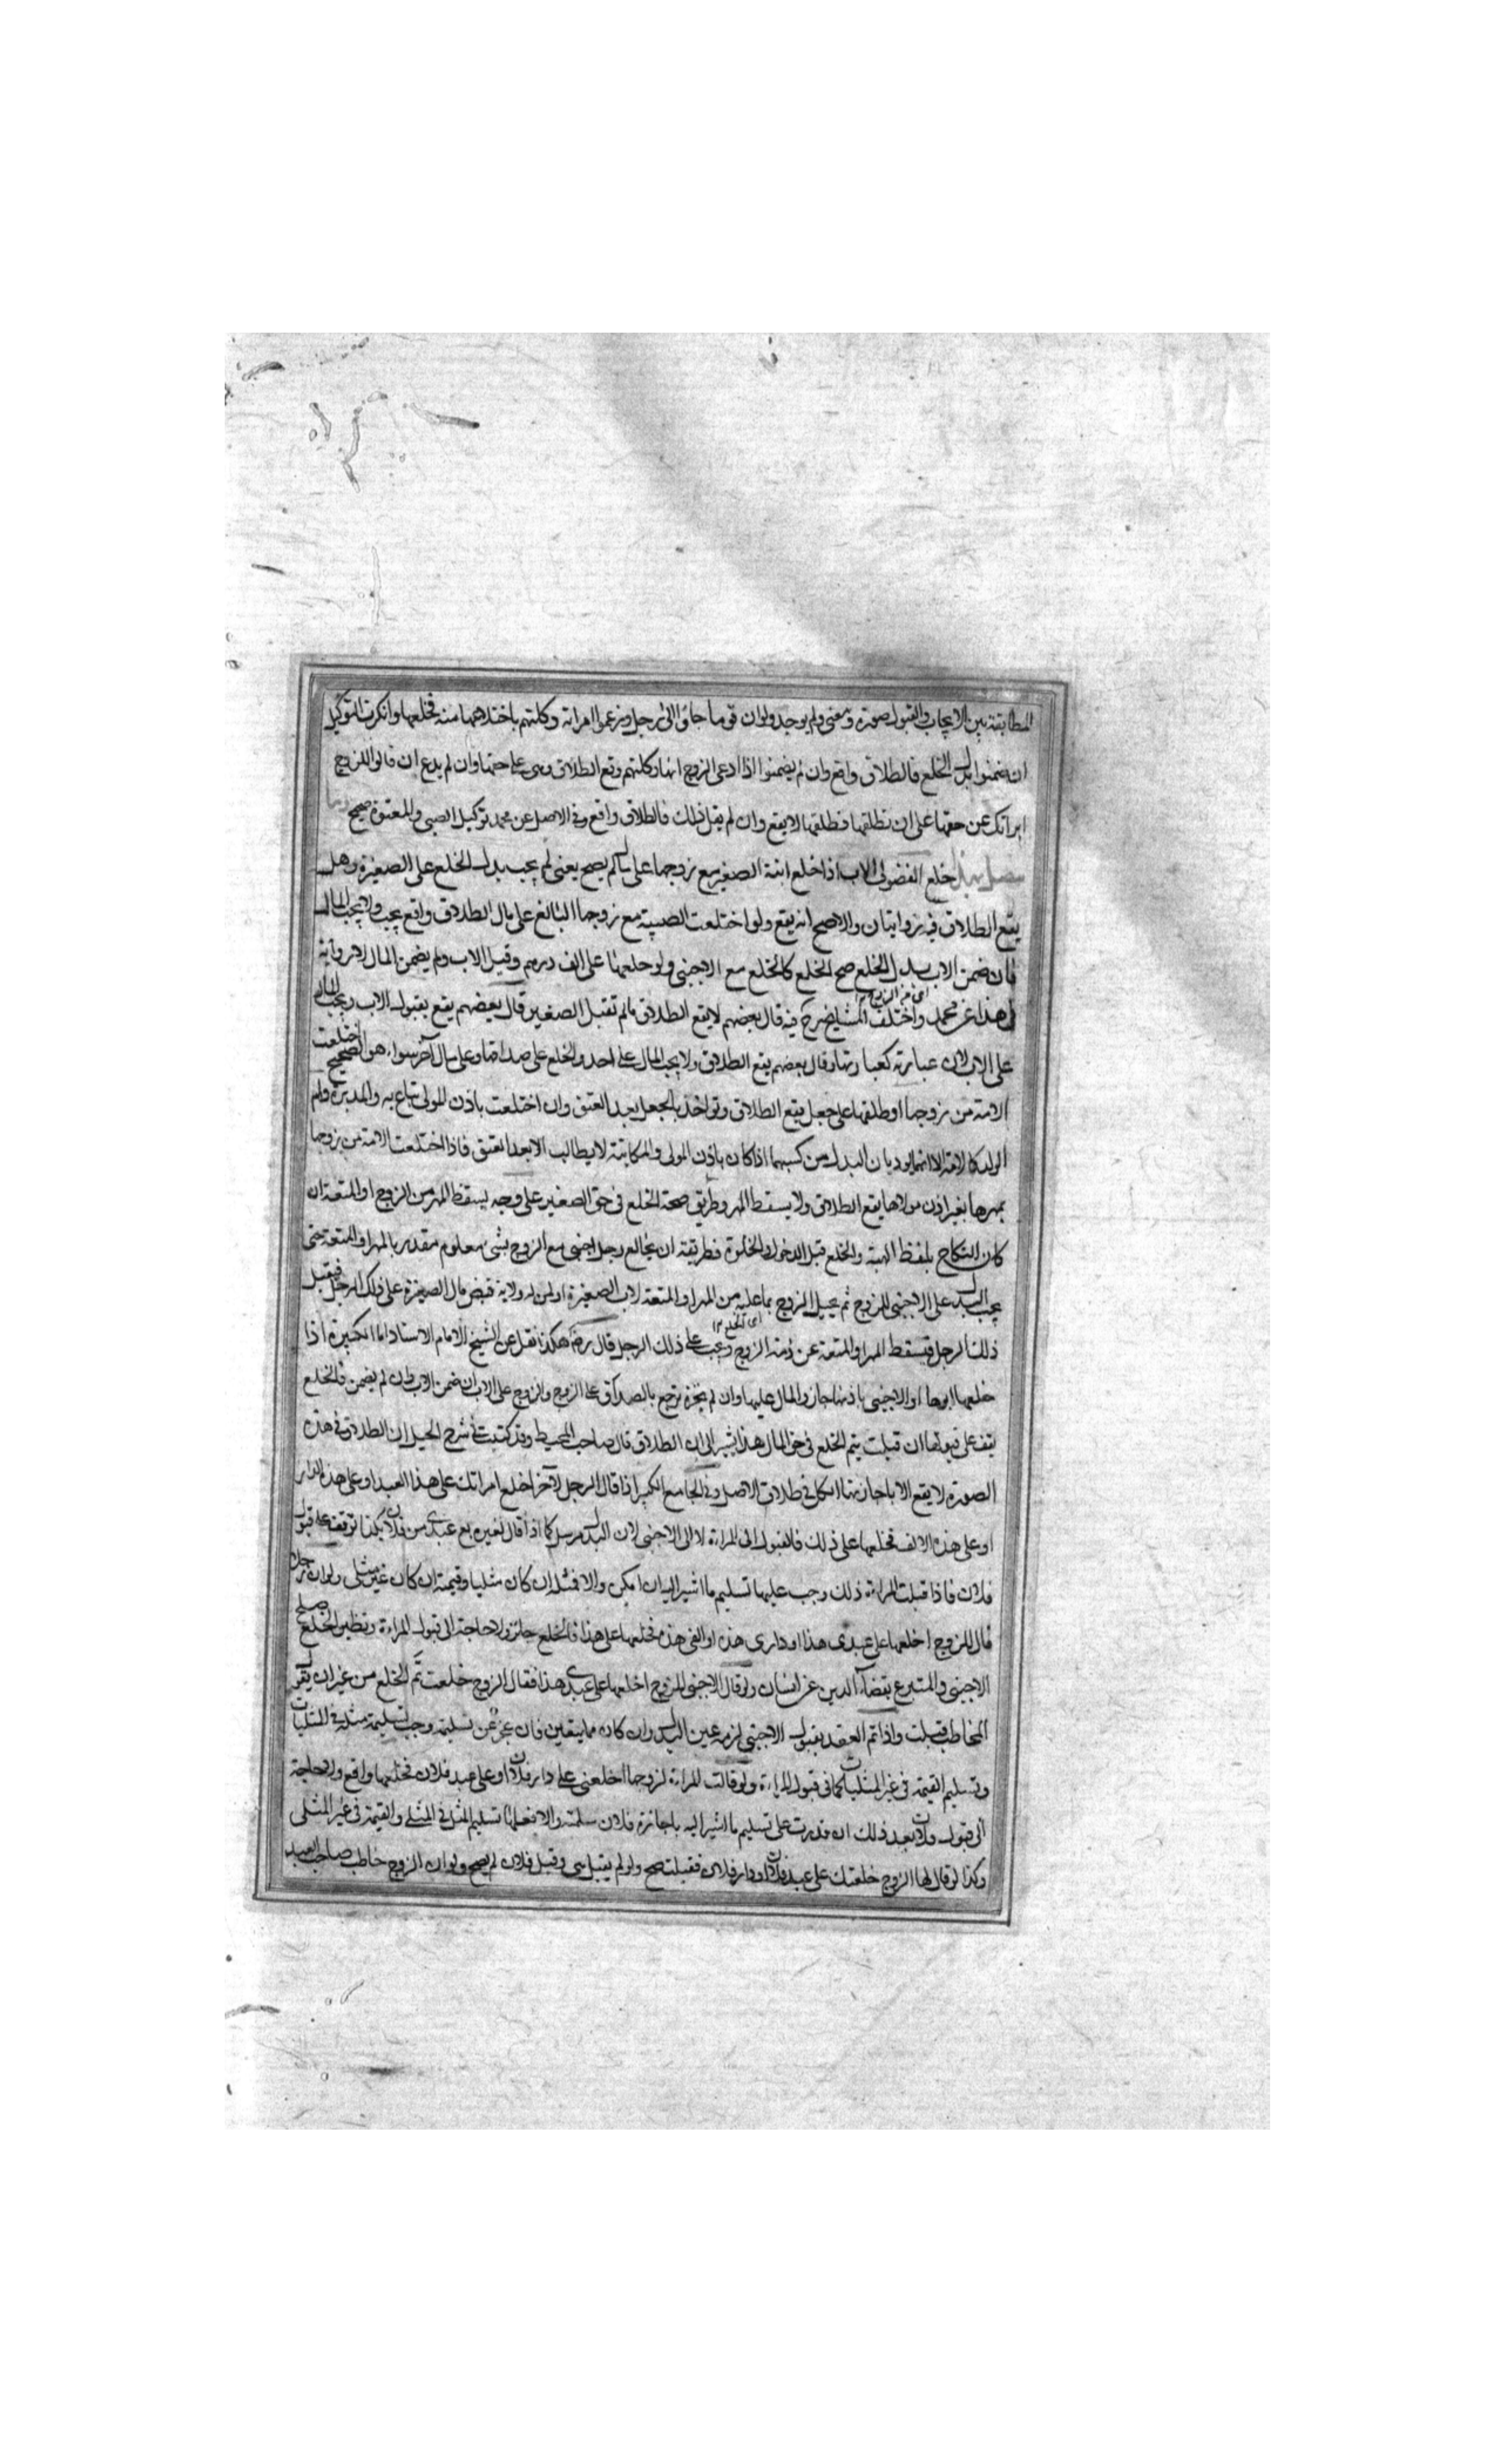 المطابقة بين الايجاب والقبول صورة ومعنى ولم يوجد ولو ان قوما جاؤا الى رجل وزعموا امراته وكلتهم باختلاعها منه فخلعها وانكرت التوكيل
ان ضمنوا بدل الخلع فالطلاق واقع وان لم يضمنوا اذا ادعى الزوج انها وكلتهم وقع الطلاق وهي على حقها وان لم يدع ان قالوا للزوج
ابراتك عن حقها على ان تطلقها فطلقها لا يقع وان لم يقل ذلك فالطلاق واقع وفي الاصل عن محمد توكيل الصبي والمعتوه صحيح
خلع الفضولي الاب اذا خلع ابنة الصغير مع زوجها على مال لم يصح يعني لم يجب بدل الخلع على الصغيرة وهل
يقع الطلاق فيه روايتان والاصح انه يقع ولو اختلعت الصبية مع زوجها البالغ على مال الطلاق واقع ولا يجب المال
فان ضمن الاب بدل الخلع صح الخلع كالخلع مع الاجنبي ولو خلعها على الف درهم وقبل الاب ولم يضمن المال لا رواية
لهذا عن محمد واختلف المشايخ رح فيه قال بعضهم لا يقع الطلاق مالم تقبل الصغير قال بعضهم يقع بقبول الاب ويجب المال
على الاب لان عبارته كعبارتها وقال بعضهم يقع الطلاق ولا يجب المال على احد والخلع على صداقها وعلى مال آخر سواء هو الصحيح اختلعت
الامة من زوجها او طلقها على جعل يقع الطلاق وتواخذ بالجعل بعد العتق وان اختلعت باذن المولى تباع به والمدبرة وام
الولد كالامة الا انهما يوديان البدل من كسبهما اذا كان باذن المولى والمكاتبة لا يطالب الا بعد العتق فاذا اختلعت الامة من زوجها
بمهرها بغير اذن مولاها يقع الطلاق ولا يسقط المهر وطريق صحة الخلع في حق الصغير على وجه يسقط المهر من الزوج او المتعة ان
كان النكاح بلفظ الهبة والخلع قبل الدخول والخلوة فطريقة ان يخالع رجل اجنبي مع الزوج بشي معلوم مقدر بالمهر او المتعة حتى
يجب البدل على الاجنبي للزوج ثم يحيل الزوج بما عليه من المهر او المتعة لاب الصغيرة او لمن له ولاية قبض مال الصغيرة على ذلك الرجل فيقبل
ذلك الرجل فيسقط المهر او المتعة عن ذمة الزوج ويجب على ذلك الرجل قال رض هكذا نقل عن الشيخ الامام الاستاد اما الكبيرة اذا
خلعها ابوها او الاجنبي باذنها جاز والمال عليها وان لم تجزه ترجع بالصداق على الزوج والزوج على الاب ان ضمن الاب وان لم يضمن فالخلع
يقف على قبولها ان قبلت يتم الخلع في حق المال هذا يشير الى ان الطلاق قال صاحب المحيط وقد كتبت في شرح الحيل ان الطلاق في هذه
الصورة لا يقع الا باجازتها في طلاق الاصل وفي الجامع الكبير اذا قال الرجل لآخر اخلع امراتك على هذا العبد او على هذه الدار
او على هذه الالف فخلعها على ذلك فالقبول الى المراة لا الى الاجنبي لان البدل مرسل كما اذا قال لغيره بع عبدي من فلان بكذا توقف على قبول
فلان فاذا قبلت المراة ذلك وجب عليها تسليم ما اشير اليه ان امكن والا فمثله ان كان مثليا وقيمته ان كان غير مثلى ولو ان رجلا
قال للزوج اخلعها على عبدى هذا او دارى هذه او الفى هذه فخلعها على هذا فالخلع جائز ولا حاجة الى قبول المراة ونظير الخلع صلح
الاجنبي والمتبرع بقضاء الدين عن انسان ولو قال الاجنبي للزوج اخلعها على عبدى هذا فقال الزوج خلعت تم الخلع من غير ان يقول
المخاطب قبلت واذا تم العقد بقبول الاجنبي لزمه عين البدل وان كان مما يتعين فان عجز عن تسليمه وجب تسليم مثله في المثليات
وتسليم القيمة في غير المثليات كما في قبول المراة ولو قالت المراة لزوجها اخلعني على دار فلان او على عبد فلان فخلعها واقع ولا حاجة
الى قبول فلان بعد ذلك ان قدرت على تسليم ما اشير اليه باجازة فلان سلمته والا فعليها تسليم المثل في المثلى والقيمة في غير المثلى
وكذا لو قال لها الزوج خلعتك على عبد فلان او دار فلان فقبلت صح ولو لم يقبل هي وقبل فلان لم يصح ولو ان الزوج خاطب صاحب العبد